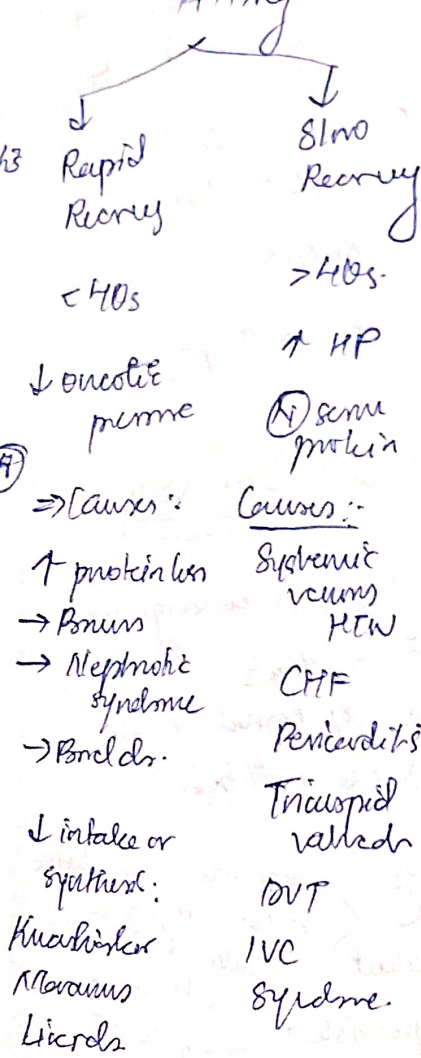 Rapid
Recovery
< 40s
↓ oncotic
pressure
⇒ Causes:
↑ protein loss
→ Burns
→ Nephrotic
syndrome
→ Bowel ds.
↓ intake or
synthesis:
Kwashiorkor
Marasmus
Liver ds
Slow
Recovery
> 40s.
↑ HP
(N) serum
protein
Causes:-
Systemic
venous
HTN
CHF
Pericarditis
Tricuspid
valve ds
DVT
IVC
Syndrome.